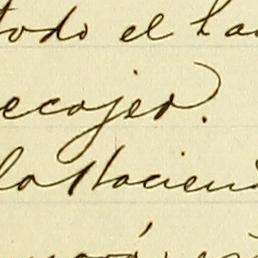 todo el ha
ecojer.
la Haciend